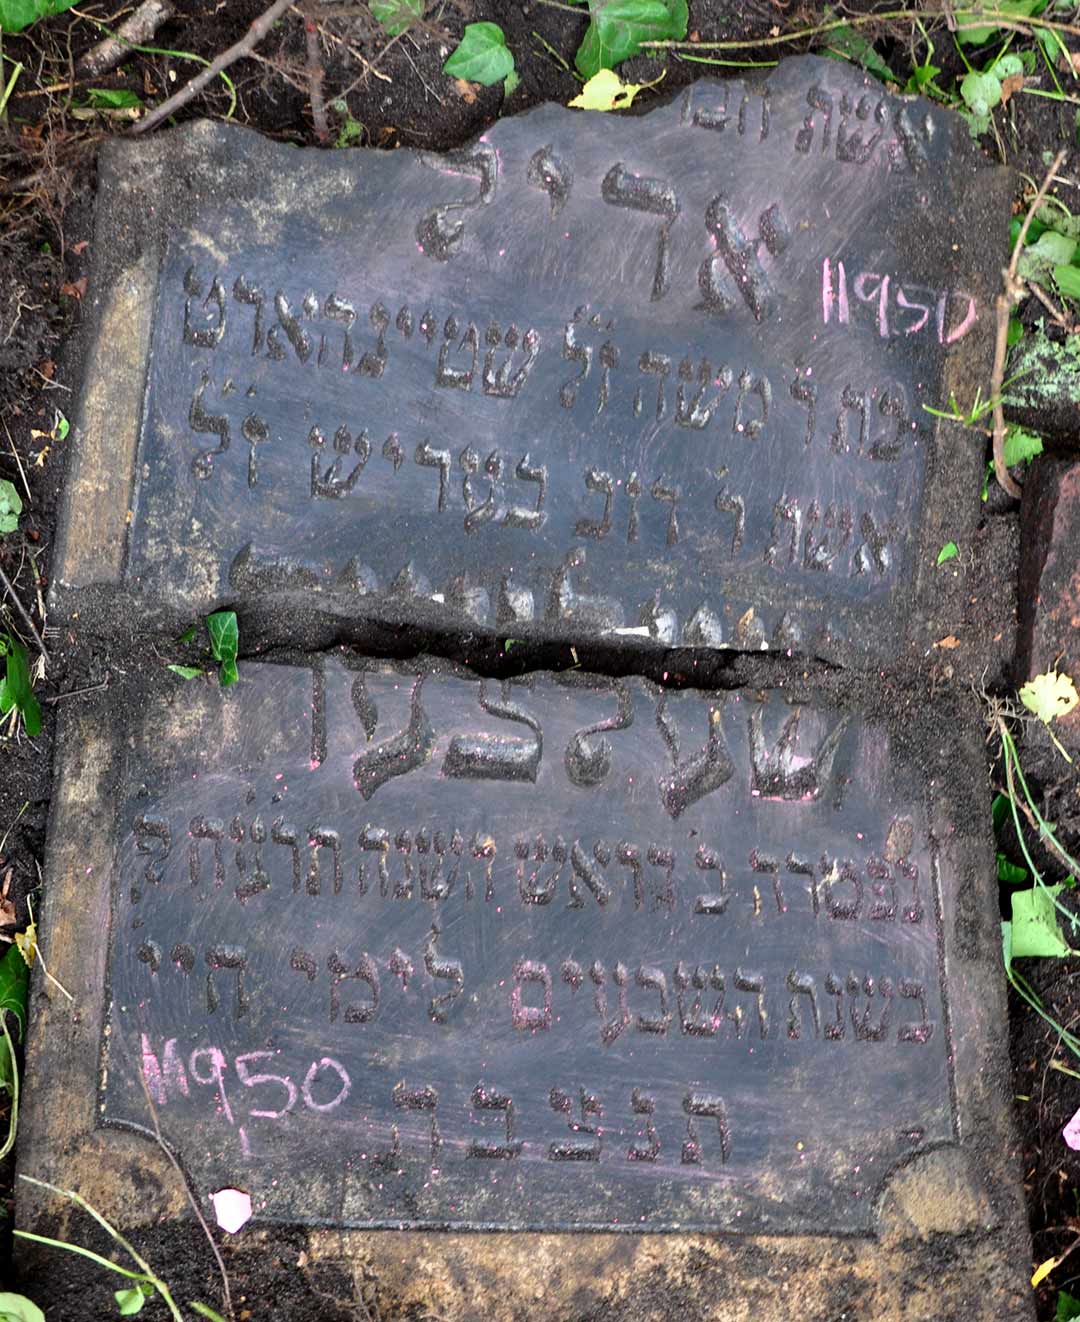 אשת
אריל
בת ר' משה ז"ל שטיינהארט
אשת ר' דוב בעריש ז"ל
שעלצער
נפטרה ב' דראש השנה תרע"ח
בשנת השבעים לימי חיי'
ת נ צ ב ה
11950
11950